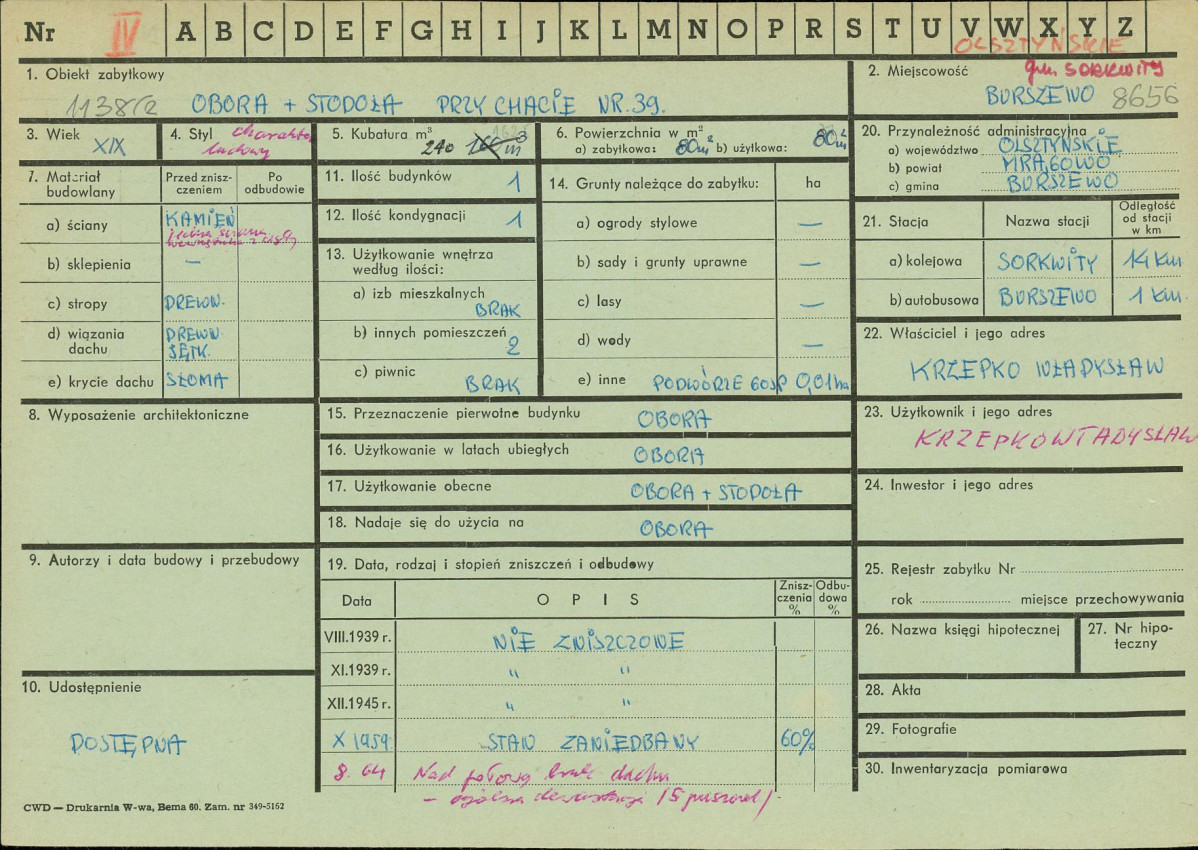 Nr IV A B C D E F G H I J K L M N O P R S T U V W X Y Z
OLSZTYŃSKIE
1. Obiekt zabytkowy
1138/2 OBORA + STODOŁA PRZY CHACIE NR. 39.
2. Miejscowość gm. SORKWITY
BURSZEWO 8656
3. Wiek
XIX
4. Styl charakter
ludowy
5. Kubatura m³
240 160 m³
6. Powierzchnia w m²
a) zabytkowa: 80m² b) użytkowa: 80m²
20. Przynależność administracyjna
a) województwo OLSZTYŃSKIE
b) powiat MRĄGOWO
c) gmina BURSZEWO
7. Materiał budowlany
Przed znisz-
czeniem
Po
odbudowie
a) ściany KAMIEŃ
jedna ściana
wewnętrzna z cegły
b) sklepienia —
c) stropy DREWN.
d) wiązania
dachu
DREWN.
SĘTK.
e) krycie dachu SŁOMA
11. Ilość budynków 1
12. Ilość kondygnacji 1
13. Użytkowanie wnętrza
według ilości:
a) izb mieszkalnych
BRAK
b) innych pomieszczeń
2
c) piwnic
BRAK
14. Grunty należące do zabytku: ha
a) ogrody stylowe —
b) sady i grunty uprawne —
c) lasy —
d) wody —
e) inne PODWÓRZE GOSP 0,01 ha
21. Stacja Nazwa stacji
Odległość
od stacji
w km
a) kolejowa SORKWITY 14 km
b) autobusowa BURSZEWO 1 km.
22. Właściciel i jego adres
KRZEPKO WŁADYSŁAW
8. Wyposażenie architektoniczne
15. Przeznaczenie pierwotne budynku OBORA
16. Użytkowanie w latach ubiegłych OBORA
17. Użytkowanie obecne OBORA + STODOŁA
18. Nadaje się do użycia na OBORA
23. Użytkownik i jego adres
KRZEPKO WŁADYSŁAW
24. Inwestor i jego adres
9. Autorzy i data budowy i przebudowy
19. Data, rodzaj i stopień zniszczeń i odbudowy
Data OPIS
Znisz-
czenia
%
Odbu-
dowa
%
VIII.1939 r. NIE ZNISZCZONE
XI.1939 r. " "
XII.1945 r. " "
X 1959 STAN ZANIEDBANY 60%
8. 64 Nad połową brak dachu
— ogólna dewastacja
25. Rejestr zabytku Nr
rok miejsce przechowywania
26. Nazwa księgi hipotecznej
27. Nr hipo-
teczny
10. Udostępnienie
DOSTĘPNA
28. Akta
29. Fotografie
30. Inwentaryzacja pomiarowa
CWD — Drukarnia W-wa, Bema 60. Zam. nr 349-5162